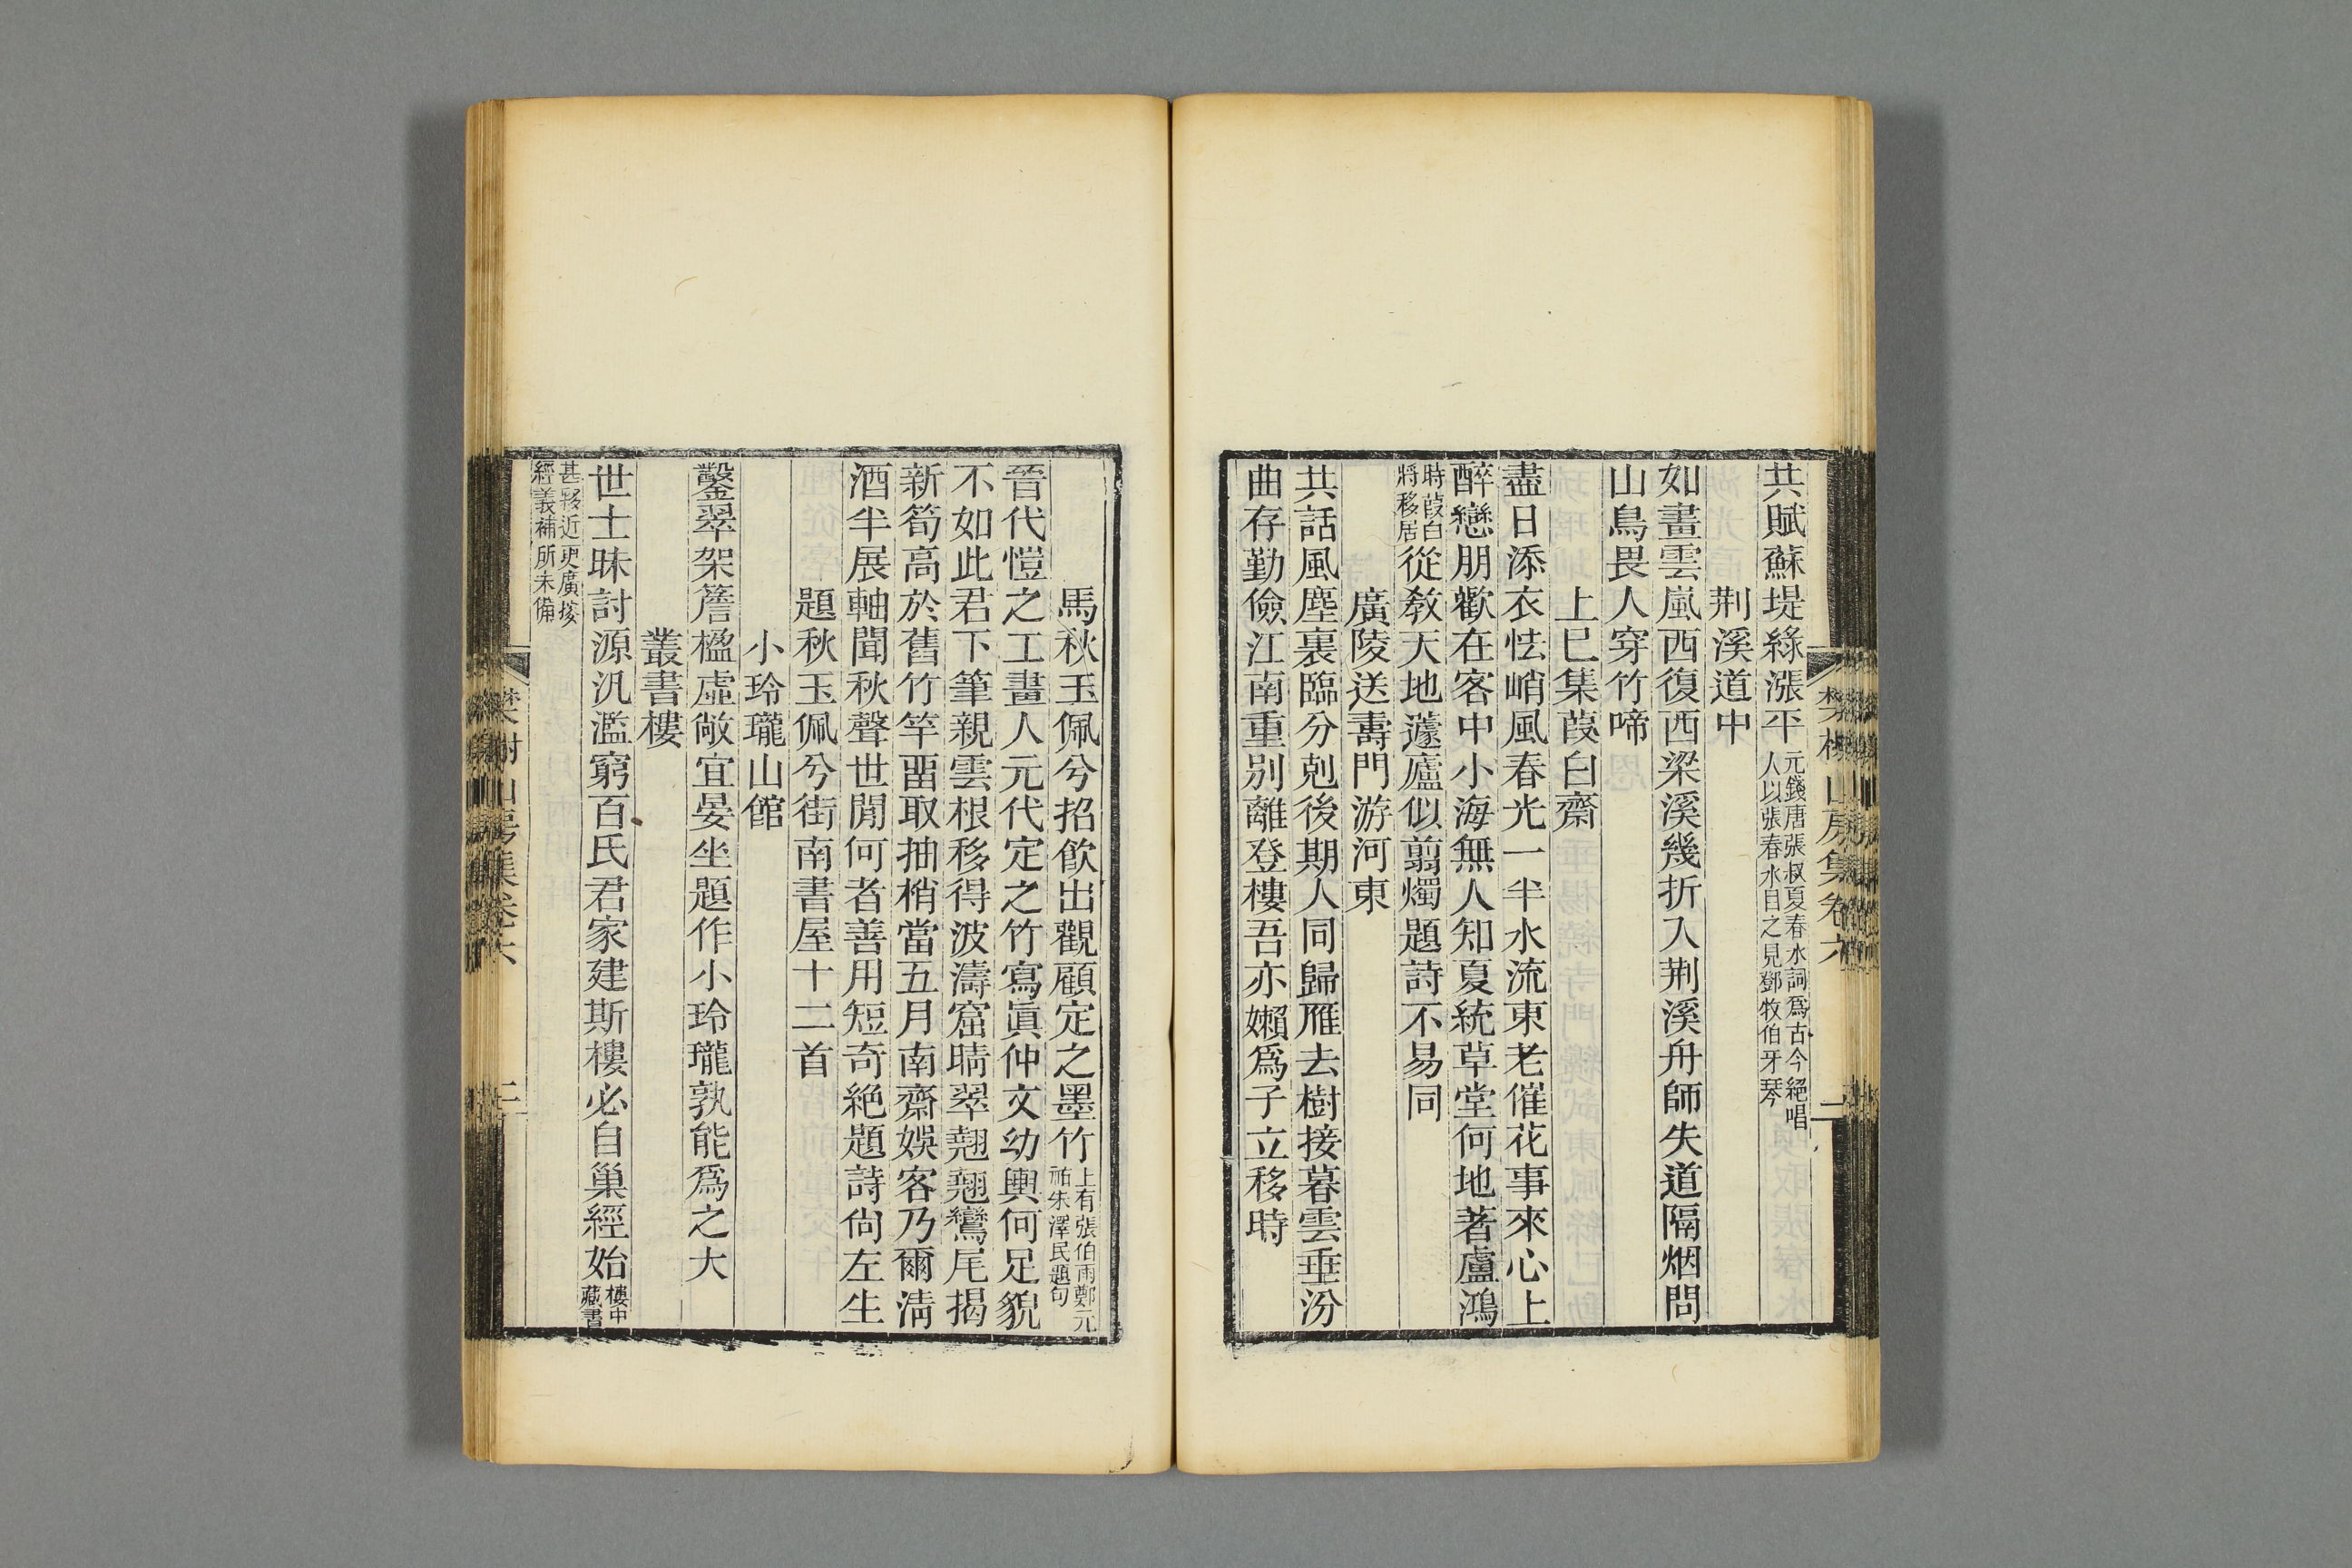 共賦蘇堤綠漲平元錢唐張叔夏春水詞爲古今絕唱人以張春水目之見鄧牧伯牙琴
荆溪道中
如畫雲嵐西復西梁溪幾折入荆溪舟師失道隔烟問
山鳥畏人穿竹啼
上巳集葭白齋
盡日添衣怯峭風春光一半水流東老催花事來心上
醉戀朋歡在客中小海無人知夏統草堂何地著盧鴻
時葭白將移居從敎天地蘧廬似翦燭題詩不易同
廣陵送壽門游河東
共話風塵裏臨分剋後期人同歸雁去樹接暮雲垂汾
曲存勤儉江南重別離登樓吾亦嬾爲子立移時
樊榭山房集卷六
二
馬秋玉佩兮招飮出觀顧定之墨竹上有張伯雨鄭元祐朱澤民題句
晉代愷之工畫人元代定之竹寫眞仲文幼輿何足貌
不如此君下筆親雲根移得波濤窟晴翠翹翹鸞尾揭
新筍高於舊竹竿畱取抽梢當五月南齋娛客乃爾淸
酒半展軸聞秋聲世閒何者善用短奇絕題詩尙左生
題秋玉佩兮街南書屋十二首
小玲瓏山館
鑿翠架簷楹虛敞宜晏坐題作小玲瓏孰能爲之大
叢書樓
世士昧討源汎濫窮百氏君家建斯樓必自巢經始樓中藏書
甚夥近更廣搜經義補所未備
樊榭山房集卷六
三